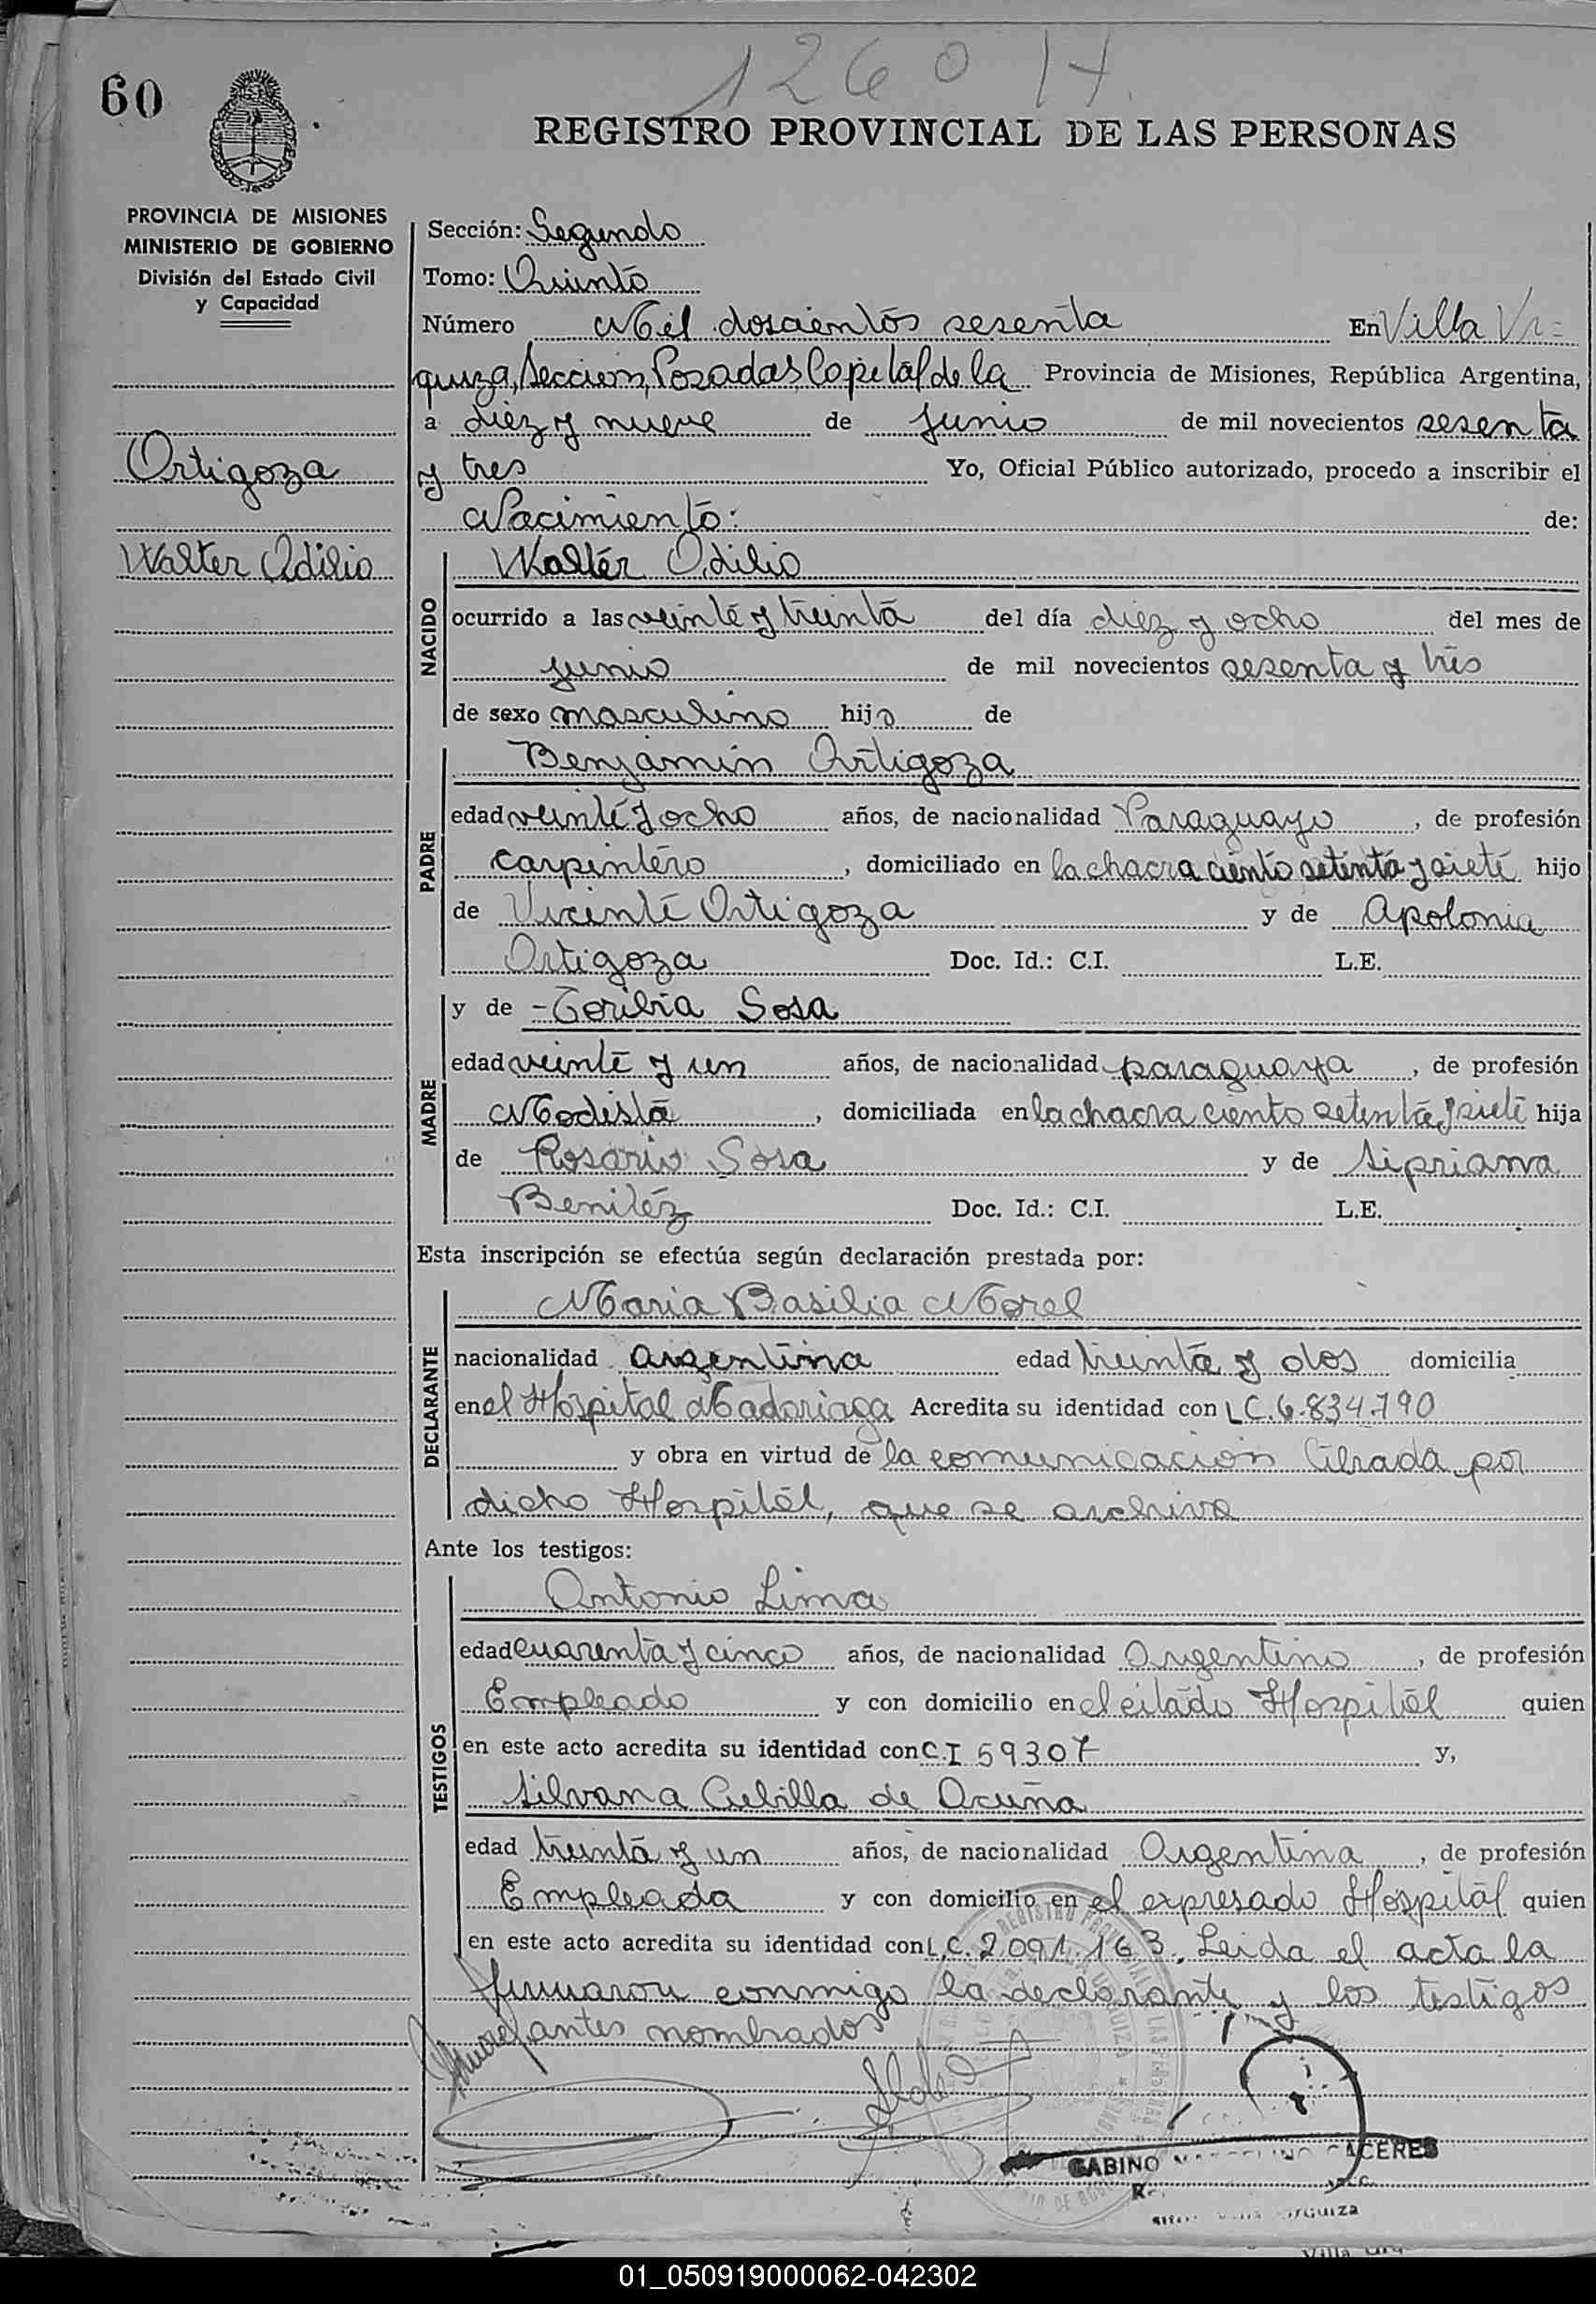 1260 H.
60
REGISTRO PROVINCIAL DE LAS PERSONAS
PROVINCIA DE MISIONES
MINISTERIO DE GOBIERNO
División del Estado Civil
y Capacidad
Ortigoza
Walter Odilio
Sección: Segundo
Tomo: Quinto
Número Mil doscientos sesenta En Villa Ur=
quiza, Seccion, Posadas Capital de la Provincia de Misiones, República Argentina,
a diez y nueve de junio de mil novecientos sesenta
y tres Yo, Oficial Público autorizado, procedo a inscribir el
Nacimiento: de:
NACIDO
Walter Odilio
ocurrido a las veinte y treinta del día diez y ocho del mes de
junio de mil novecientos sesenta y tres
de sexo masculino hijo de
PADRE
Benjamin Ortigoza
edad veinte y ocho años, de nacionalidad Paraguayo, de profesión
carpintero, domiciliado en la chacra ciento setenta y siete hijo
de Vicente Ortigoza y de Apolonia
Ortigoza Doc. Id.: C.I. L.E.
MADRE
y de -Toribia Sosa
edad veinte y un años, de nacionalidad paraguaya, de profesión
Modista, domiciliada en la chacra ciento setenta y siete hija
de Rosario Sosa y de Sipriana
Benitéz Doc. Id.: C.I. L.E.
Esta inscripción se efectúa según declaración prestada por:
DECLARANTE
Maria Basilia Morel
nacionalidad argentina edad treinta y dos domicilia
en el Hospital Madariaga Acredita su identidad con L C. 6.834.790
y obra en virtud de la comunicación librada por
dicho Hospital, que se archiva
Ante los testigos:
TESTIGOS
Antonio Lima
edad cuarenta y cinco años, de nacionalidad Argentino, de profesión
Empleado y con domicilio en el citado Hospital quien
en este acto acredita su identidad con C.I 59307 y,
Silvana Cubilla de Acuña
edad treinta y un años, de nacionalidad Argentina, de profesión
Empleada y con domicilio en el expresado Hospital quien
en este acto acredita su identidad con L.C. 2.091.163. Leida el acta la
firmaron conmigo la declarante y los testigos
antes nombrados
GABINO CACERES
01_050919000062-042302